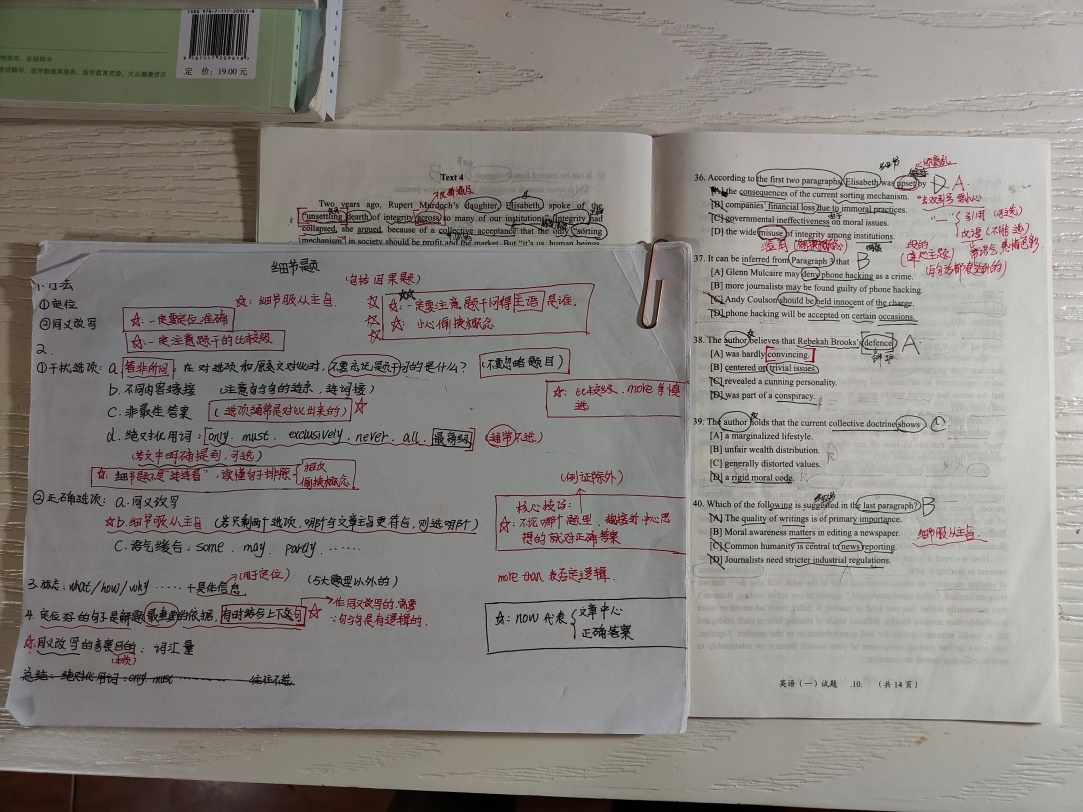 ISBN 978-7-117-20961-8
9 787117 209618
定 价：19.00 元
Text 4
Two years ago, Rupert Murdoch's daughter, Elisabeth, spoke of the
"unsettling dearth of integrity across so many of our institutions". Integrity had
collapsed, she argued, because of a collective acceptance that the only "sorting
mechanism" in society should be profit and the market. But "it's us, human beings
细节题
1. 方法
①定位
②同义改写
☆：细节服从主旨
☆：一定要定位准确
☆：一定注意题干的比较级
（包括因果题）
☆：一定要注意题干问得主语是谁，
☆：小心偷换概念
2.
①干扰选项：a. 答非所问，在对选项和原文对比时，不要忘记题干问的是什么？（不要忽略题目）
b. 不同内容嫁接（注意句与句的连系，连词接）
c. 非最佳答案（选项通常是对比出来的）☆
☆：比较级、more 慎选
d. 绝对化用词：only、must、exclusively、never、all、最高级 通常不选
（若文中明确提到，可选）
☆：细节题不是"连连看"，读懂句子排除 相反 偷换概念
②正确选项：a. 同义改写
☆b. 细节服从主旨（若只剩两个选项，哪个与文章主旨更符合，则选哪个）
c. 语气缓与：some、may、partly、······
（例证除外）
核心技法：
☆：不论哪个题型，越接近中心思
想的就对正确答案
3. 标志：what/how/why ······ +具体信息（用于定位）（5大题型以外的）
more than 表否定逻辑.
4. 定位好的句子是解题最重要的依据，有时结合上下文句☆
作同义改写的需要
句与句是有逻辑的.
☆：now 代表 文章中心 正确答案
☆同义改写的考察目的：词汇量
总结：绝对化用词：only must 往往不选
36. According to the first two paragraphs, Elisabeth was upset by D A.
[A] the consequences of the current sorting mechanism.
[B] companies' financial loss due to immoral practices.
[C] governmental ineffectiveness on moral issues.
[D] the wide misuse of integrity among institutions.
37. It can be inferred from Paragraph 3 that B
[A] Glenn Mulcaire may deny phone hacking as a crime.
[B] more journalists may be found guilty of phone hacking.
[C] Andy Coulson should be held innocent of the charge.
[D] phone hacking will be accepted on certain occasions.
38. The author believes that Rebekah Brooks's defence A
[A] was hardly convincing.
[B] centered on trivial issues.
[C] revealed a cunning personality.
[D] was part of a conspiracy.
39. The author holds that the current collective doctrine shows C
[A] a marginalized lifestyle.
[B] unfair wealth distribution.
[C] generally distorted values.
[D] a rigid moral code.
40. Which of the following is suggested in the last paragraph? B
[A] The quality of writings is of primary importance.
[B] Moral awareness matters in editing a newspaper.
[C] Common humanity is central to news reporting.
[D] Journalists need stricter industrial regulations.
细节服从主旨
英语（一）试题 .10. （共 14 页）